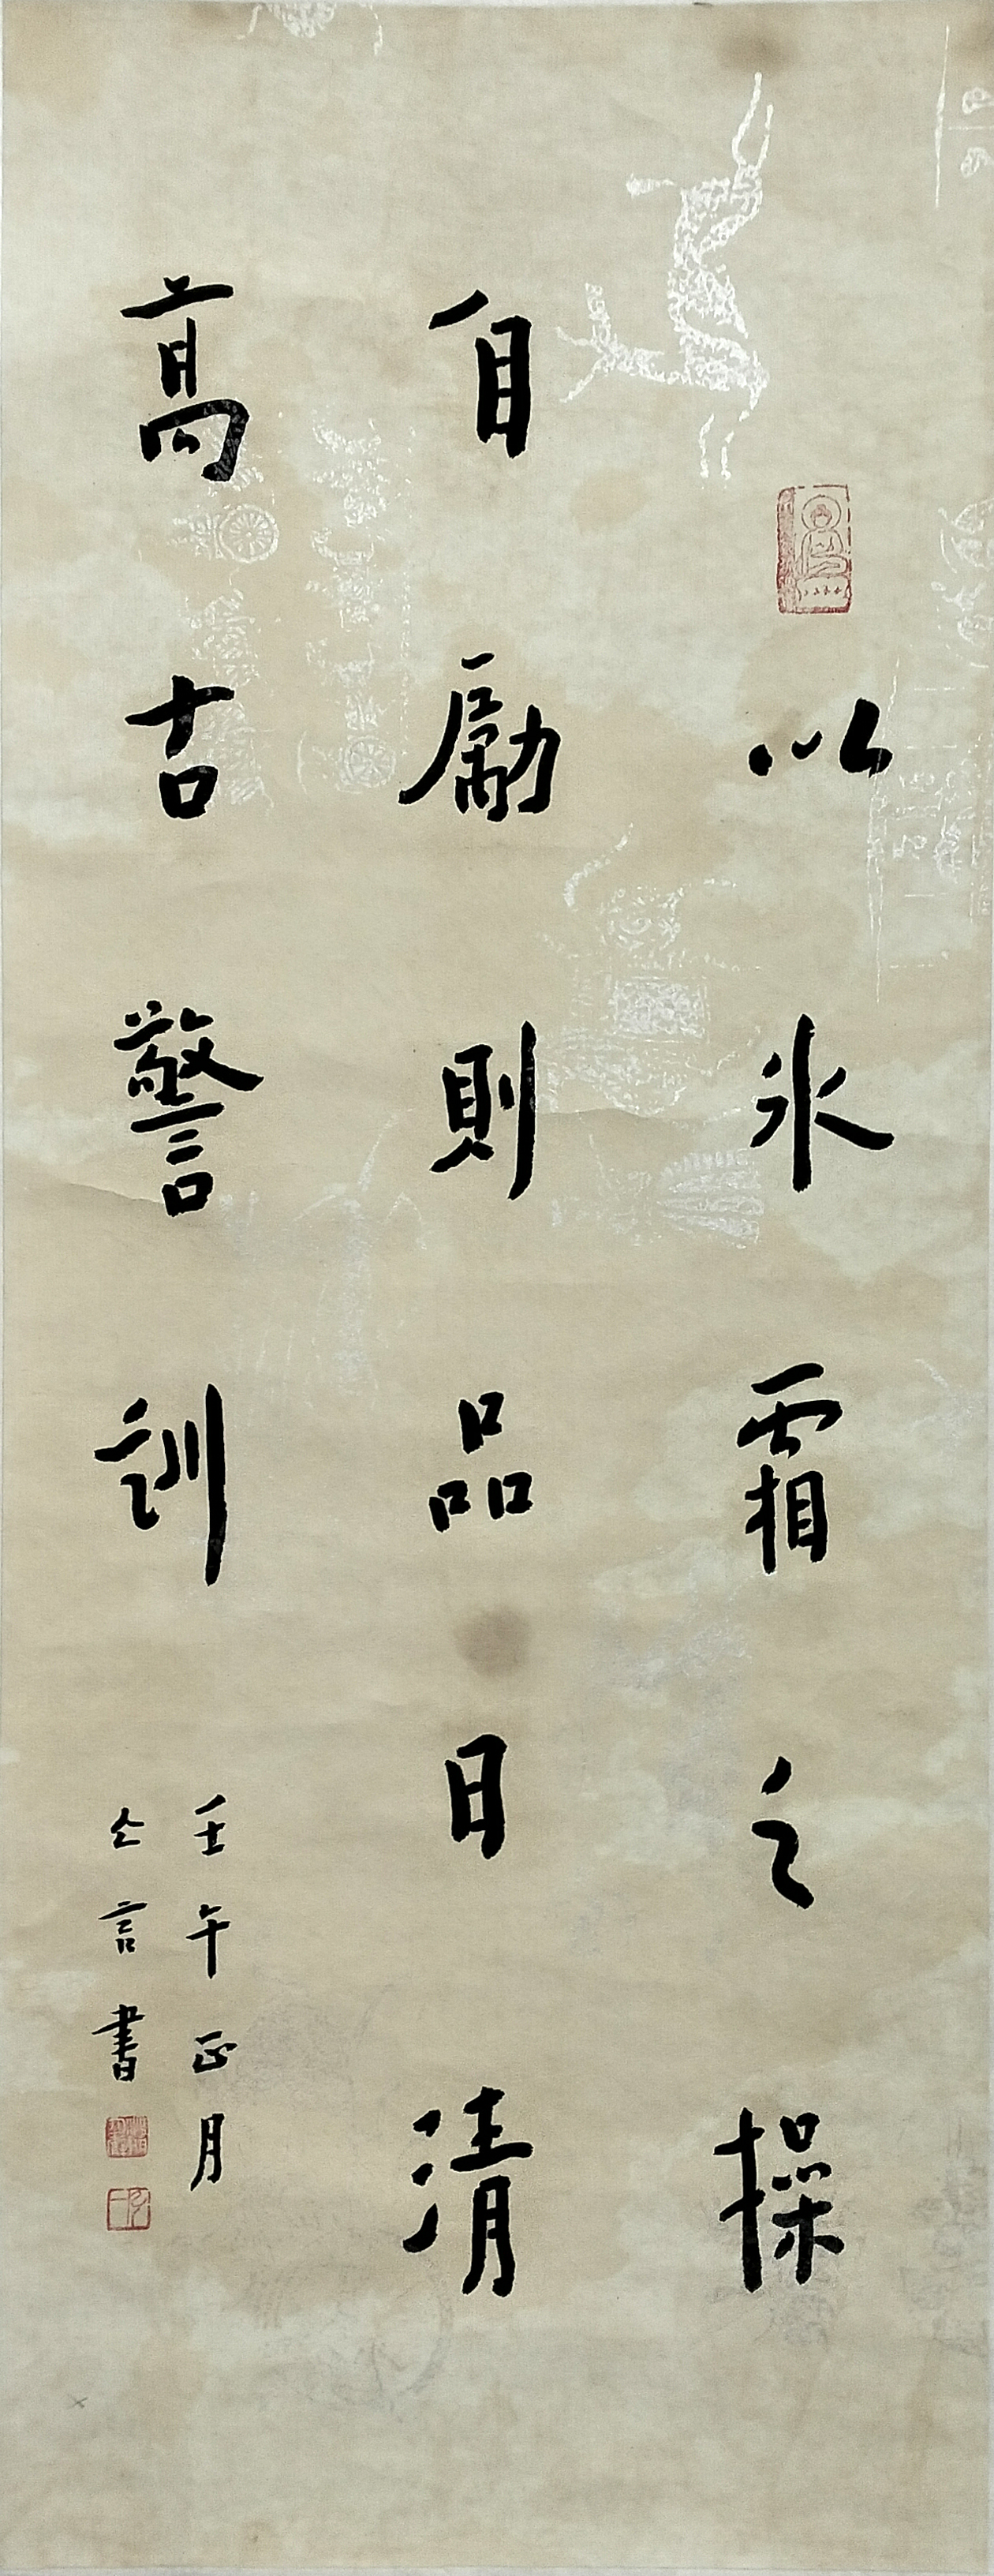 以氷霜之操
自勵則品日清
高古警訓
壬午正月
亼言書